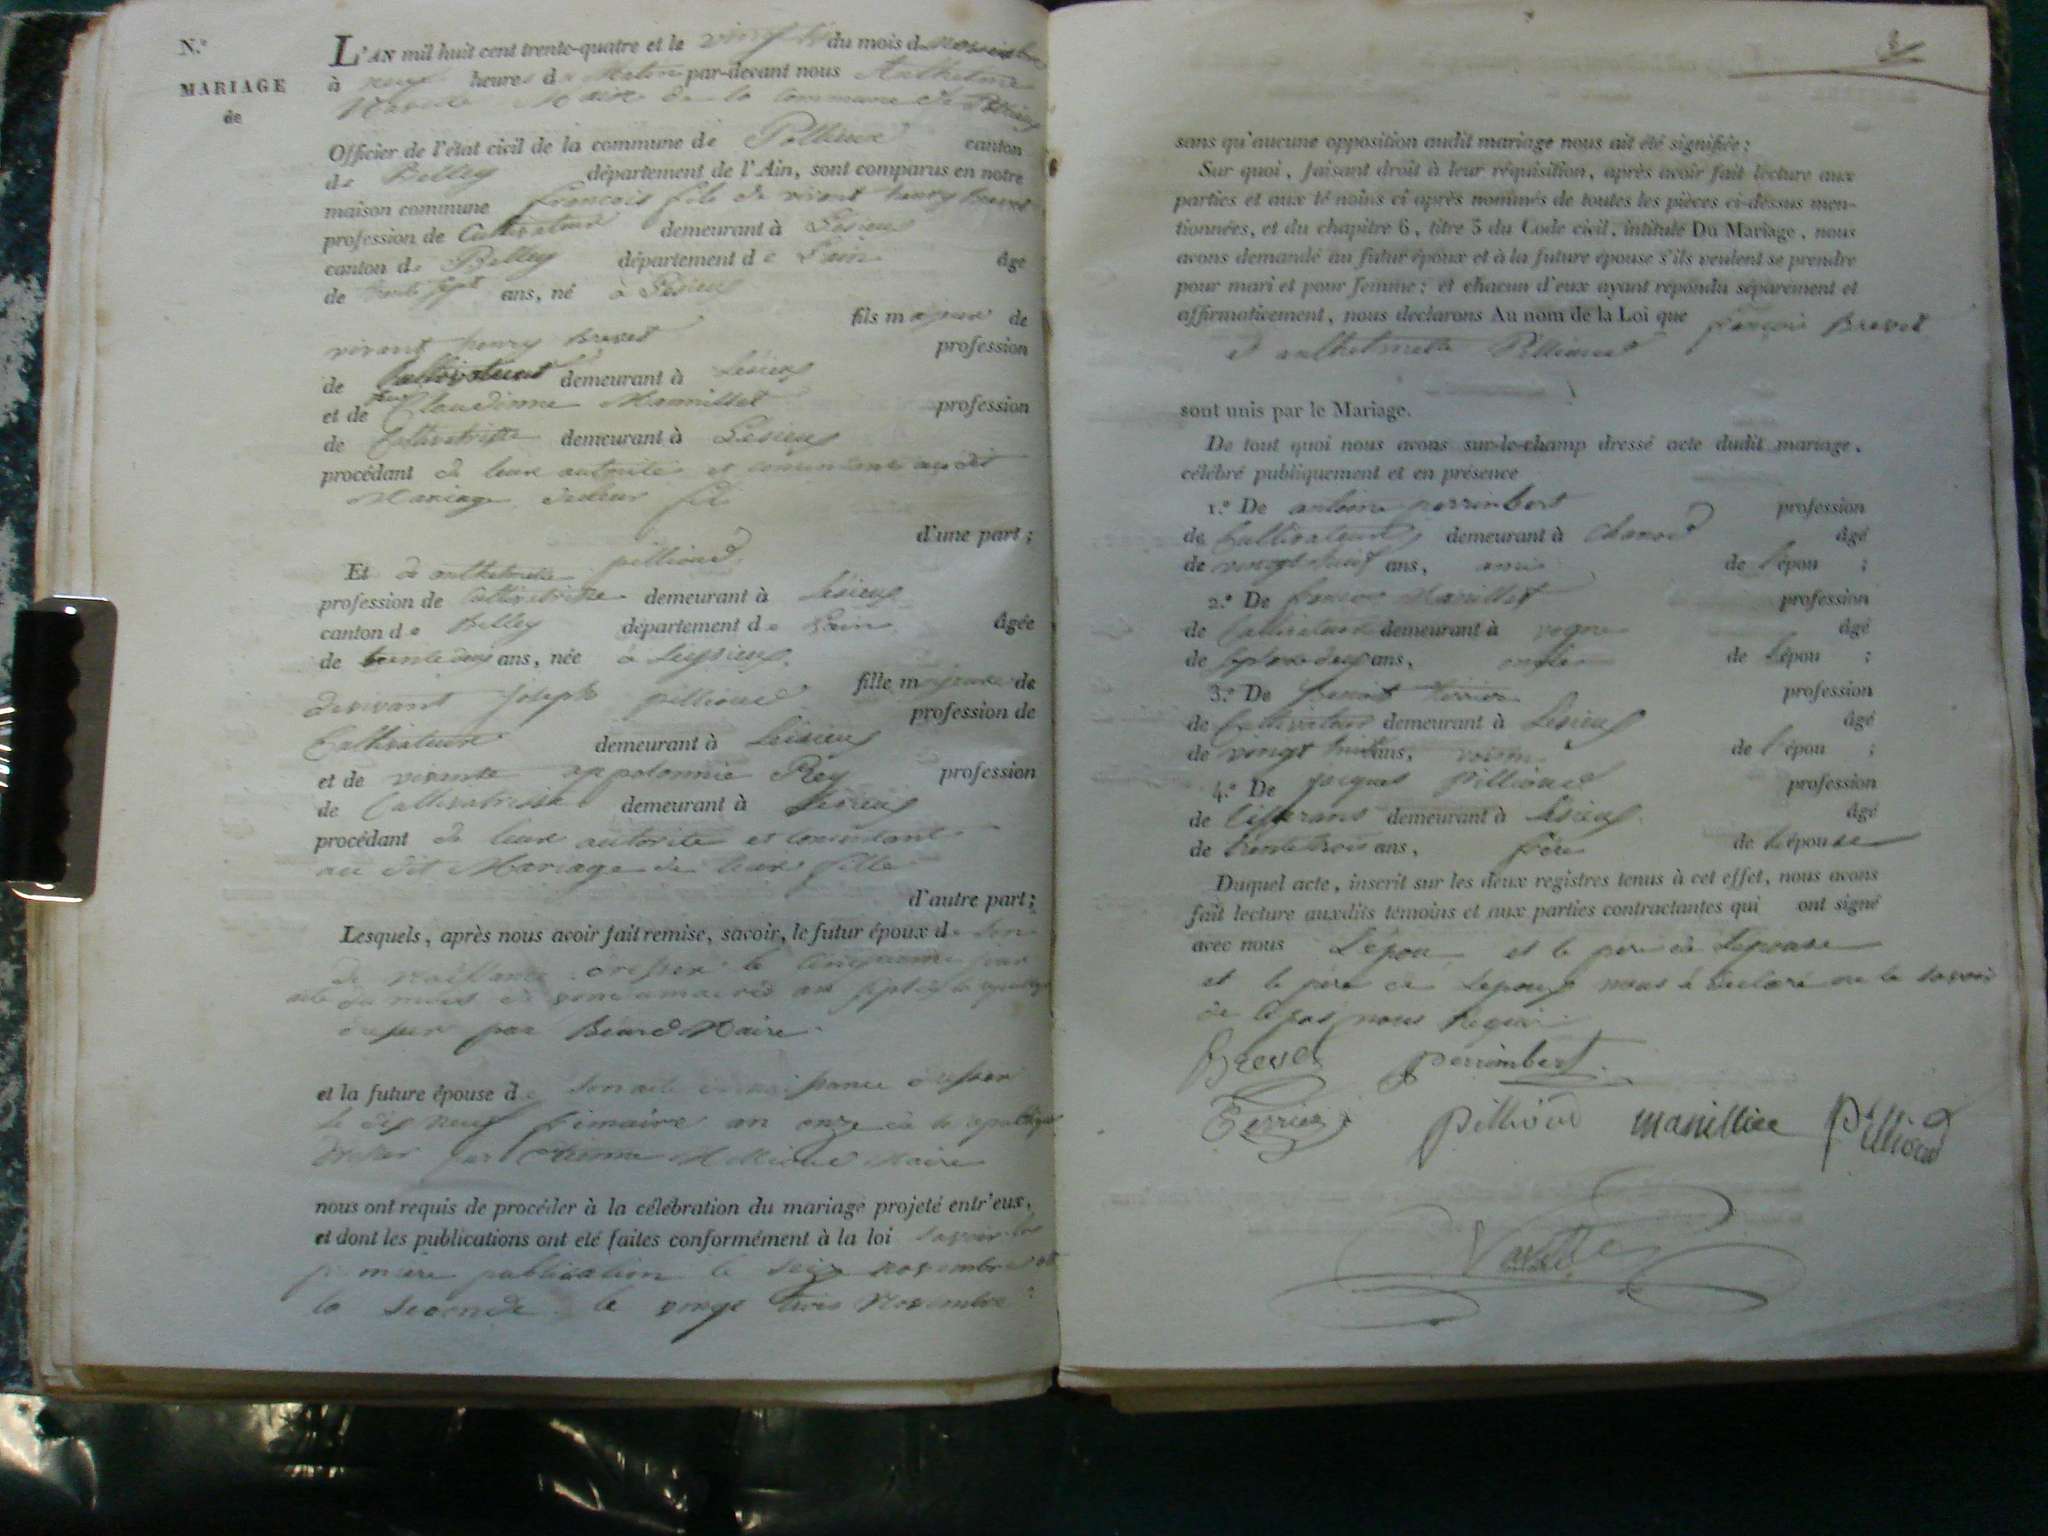 N.º
MARIAGE
de
L'AN mil huit cent trente-quatre et le vingt du mois de novembre
à neuf heures du Matin par-devant nous Anthelme
Maire de la commune de Pollieux
Officier de l'état civil de la commune de Pollieux canton
de Belley département de l'Ain, sont comparus en notre
maison commune francois fils de vivant henry brevet
profession de Cultivateur demeurant à Lésieux
canton de Belley département de L'ain âge
de trente sept ans, né à Lésieux
fils majeur de
vivant henry brevet profession
de Cultivateur demeurant à Lésieux
et de Claudinne profession
de Cultivatrisse demeurant à Lésieux
procédant de leur autorité et consentant au dit
Mariage de leur fils
d'une part;
Et de anthelmette pillioud
profession de Cultivatrisse demeurant à Lésieux
canton de Belley département de L'ain âgée
de trente deux ans, née à Leysieux
fille majeure de
de vivant Joseph pillioud profession de
Cultivateur demeurant à Leisieux
et de vivante appolonnie Rey profession
de Cultivatrisse demeurant à Lésieux
procédant de leur autorité et consentant
au dit Mariage de leur fille
d'autre part;
Lesquels, après nous avoir fait remise, savoir, le futur époux de son
de naissance dresser le cinquieme jour
acte du mois de vendemaire an sept de la
dresser par Béard Maire
et la future épouse de son acte de naissance dresser
le dix neuf frimaire an onze de la republique
dresser par Maire
nous ont requis de procéder à la célébration du mariage projeté entr'eux,
et dont les publications ont été faites conformément à la loi savoir la
premiere publication le seize novembre et
la seconde le vingt trois Novembre
sans qu'aucune opposition audit mariage nous ait été signifiée;
Sur quoi, faisant droit à leur réquisition, après avoir fait lecture aux
parties et aux témoins ci après nommés de toutes les pièces ci-dessus men-
tionnées, et du chapitre 6, titre 5 du Code civil, intitulé Du Mariage, nous
avons demandé au futur époux et à la future épouse s'ils veulent se prendre
pour mari et pour femme; et chacun d'eux ayant répondu séparément et
affirmativement, nous declarons Au nom de la Loi que françois Brevet
et anthelmette Pillioud
sont unis par le Mariage.
De tout quoi nous avons sur-le-champ dressé acte dudit mariage,
célébré publiquement et en présence
1.º De antoine perrimbert profession
de Cultivateur demeurant à Chanod âgé
de vingt neuf ans, ami de l'épou ;
2.º De francois profession
de Cultivateur demeurant à vogne âgé
de ans, oncle de l'épou ;
3.º De ferrier profession
de Cultivateur demeurant à Lésieux âgé
de vingt huit ans, voisin de l'épou ;
4.º De jacques Pillioud profession
de Tisserans demeurant à Lésieux âgé
de trente trois ans, frère de l'épouse
Duquel acte, inscrit sur les deux registres tenus à cet effet, nous avons
fait lecture auxdits témoins et aux parties contractantes qui ont signé
avec nous L'épou et le pere de L'epouse
et le père de Lepoux nous à déclaré ne le savoir
de ce par nous requis
Brevet perrimbert
ferrier pillioud manillier pillioud